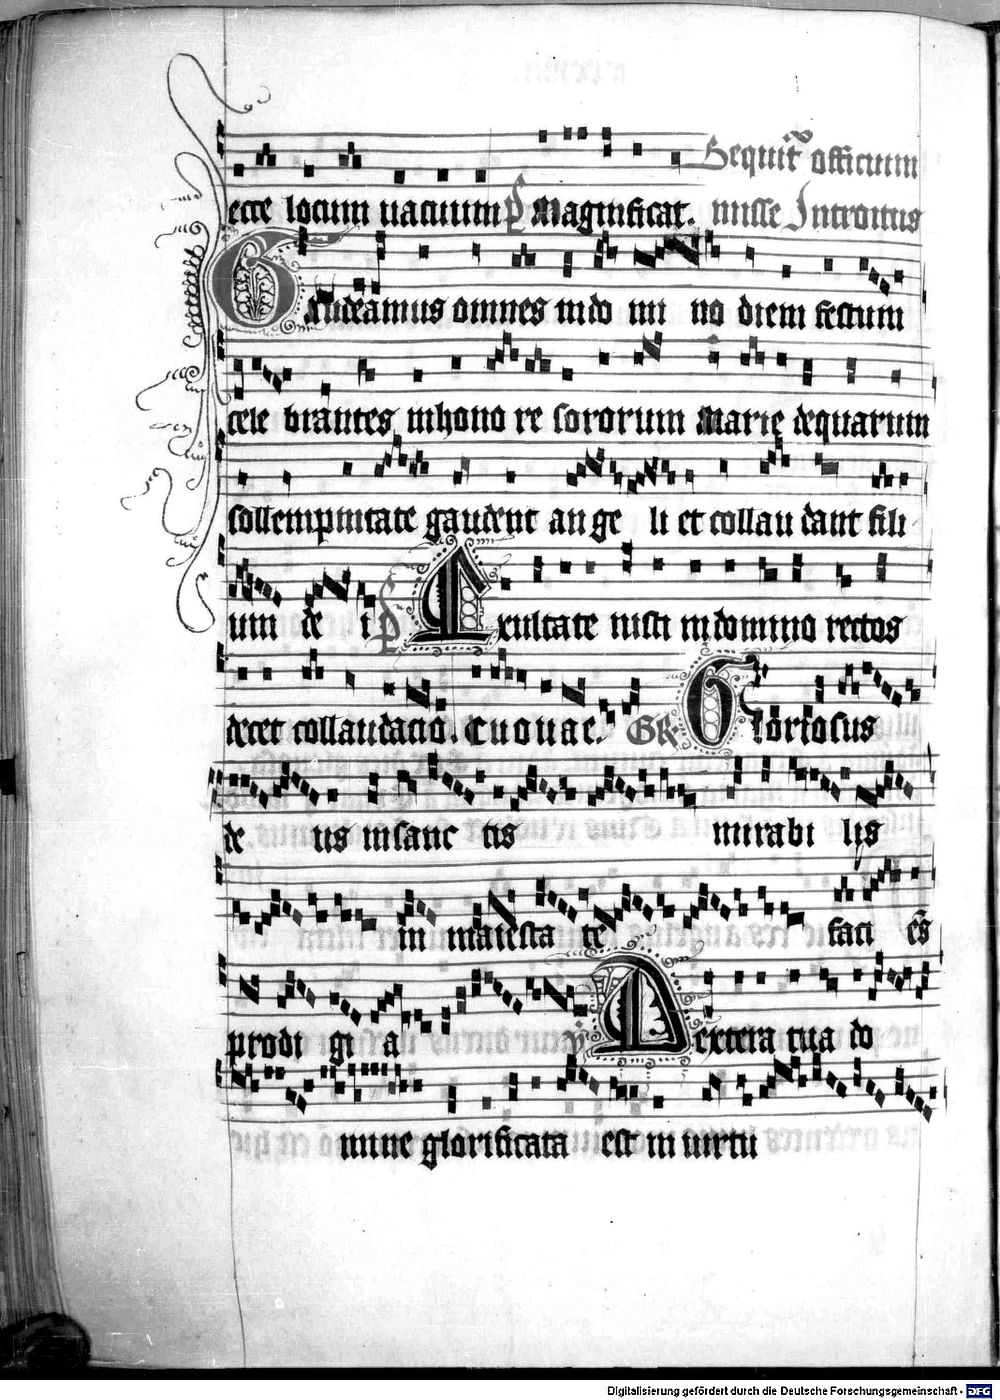 Sequit̄ officium
ecce locum uacuum p̄s Magnificat. misse Introitus
Gaudeamus omnes in do mi no diem festum
cele brantes inhono re sororum Marie dequarum
sollempnitate gaudent an ge li et collau dant fili
um de i p̄s Exultate iusti in domino rectos
decet collaudacio. Euouae. Gr̄ Gloriosus
de us insanc tis mirabi lis
in maiesta te faci es
prodi gi a v̄ Dextera tua do
mine glorificata est in uirtu
Digitalisierung gefördert durch die Deutsche Forschungsgemeinschaft - DFG